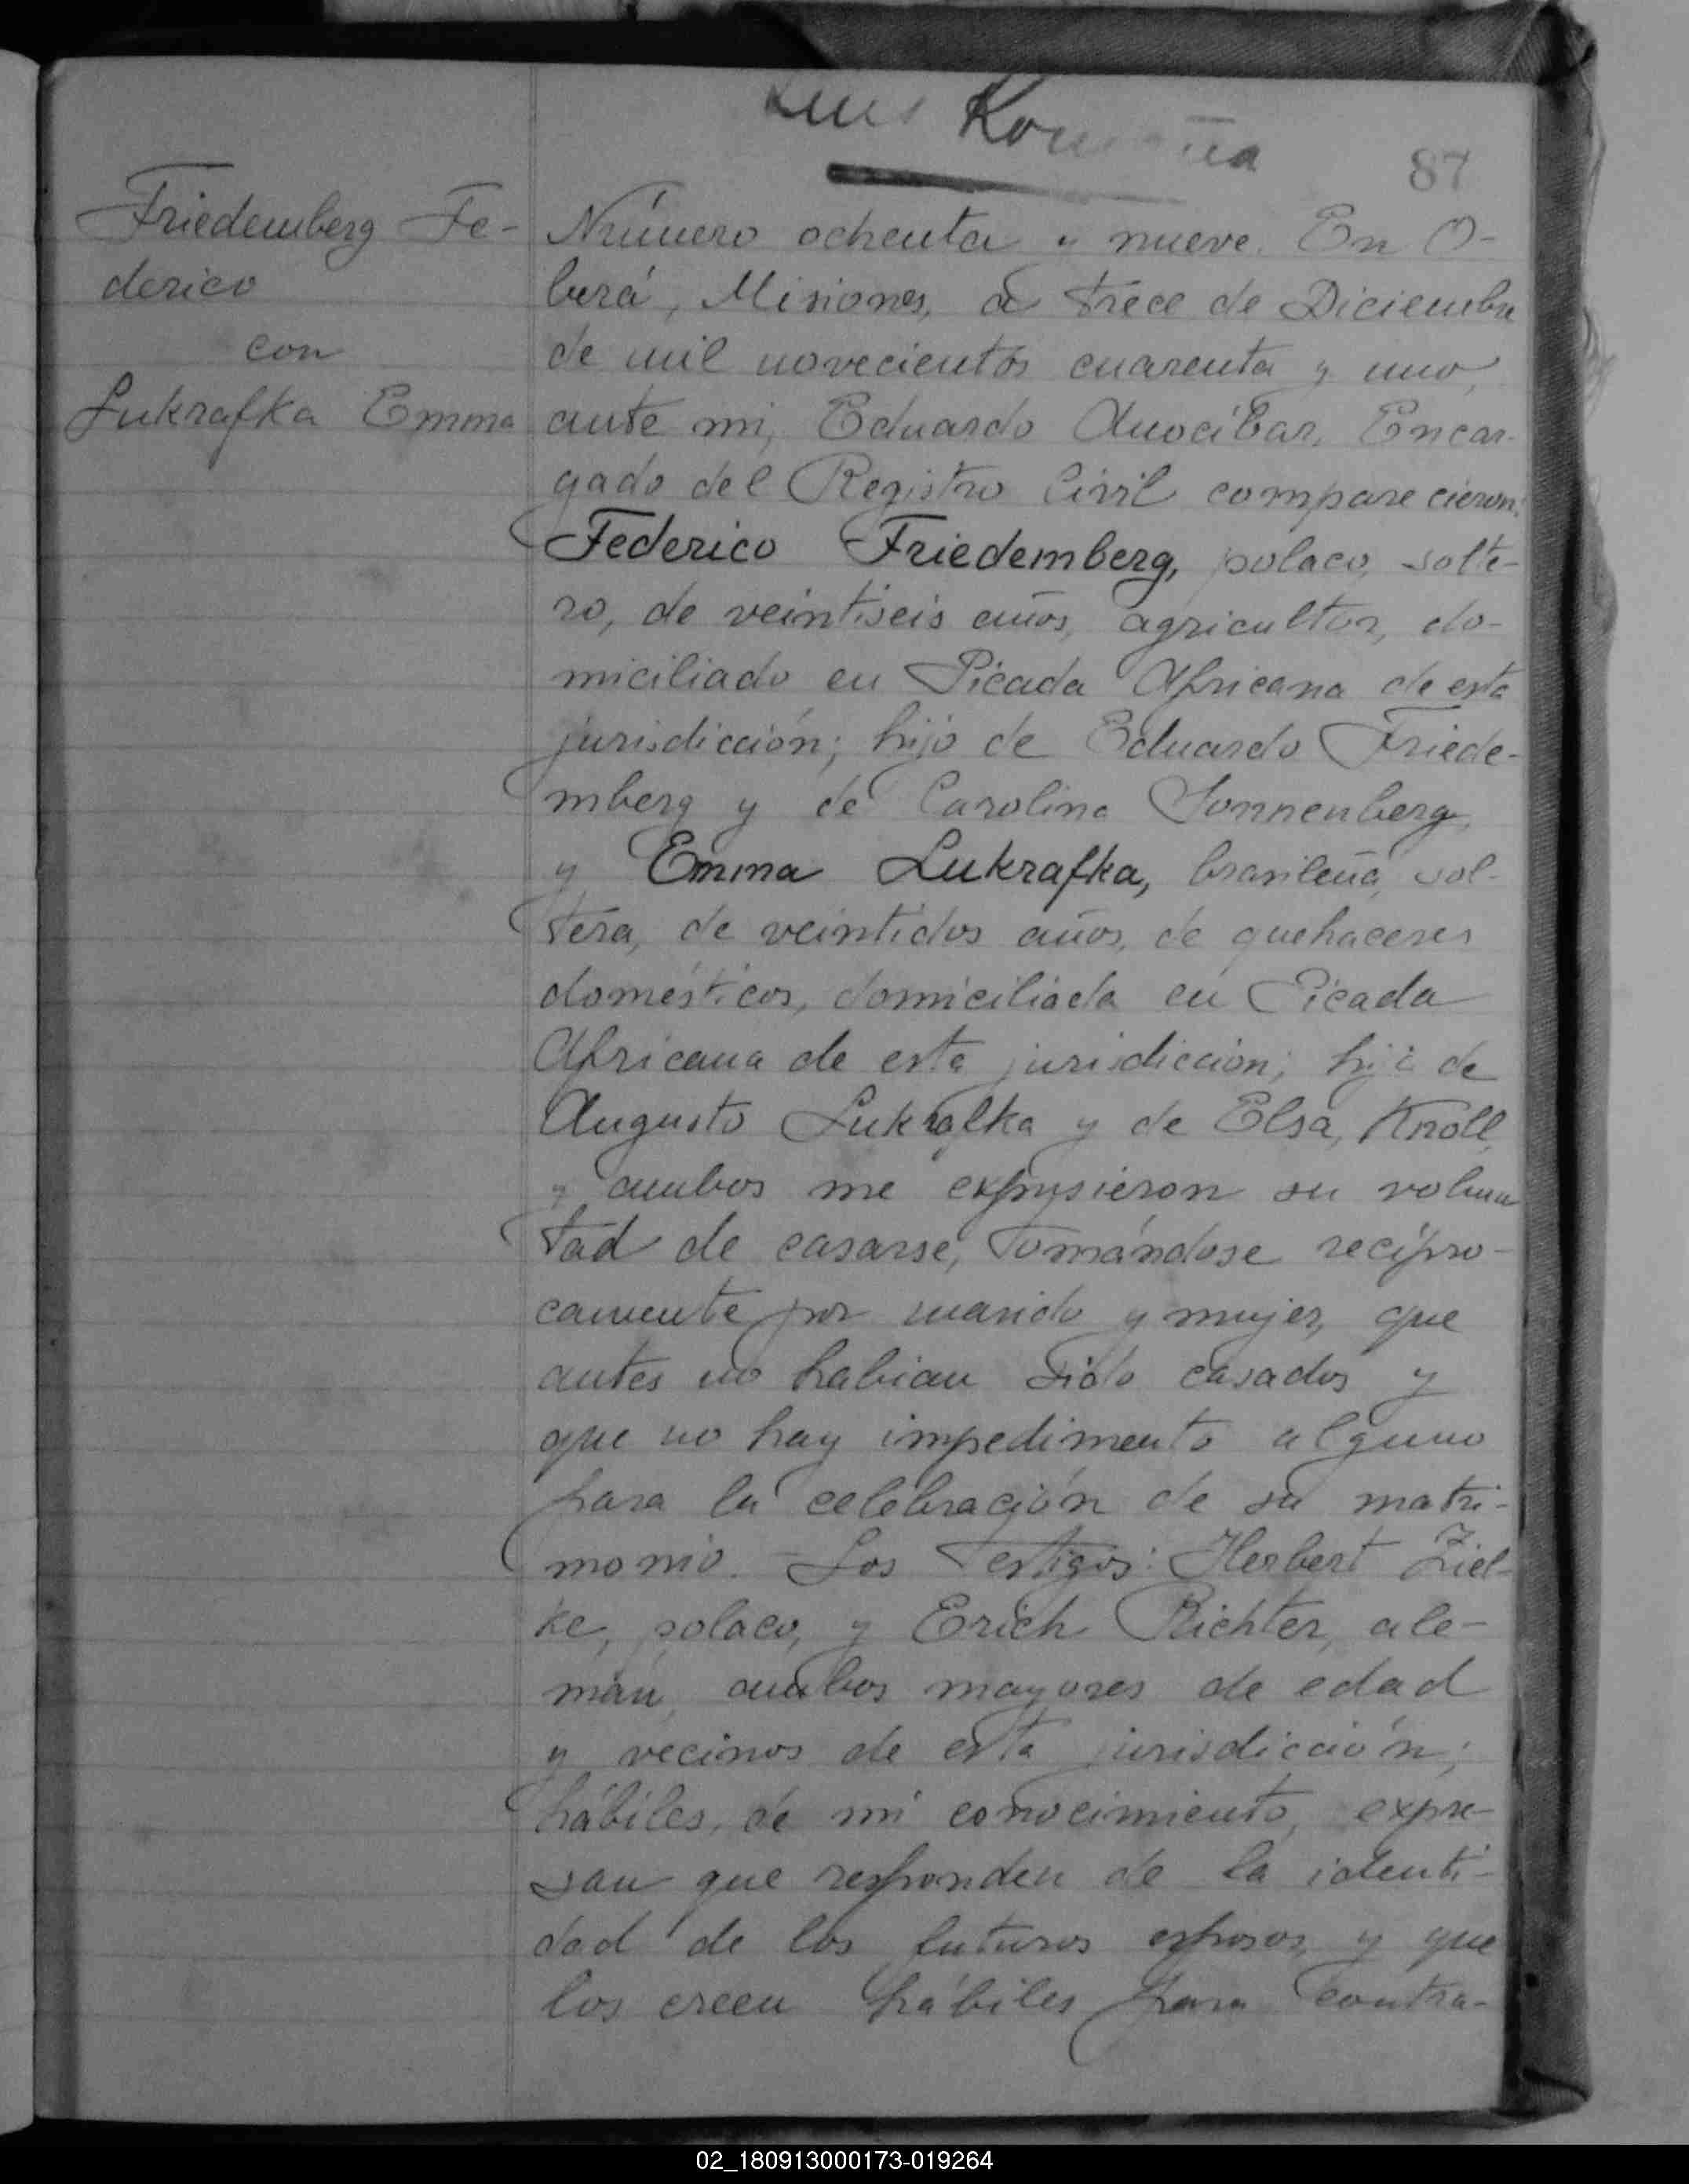 Luis
87
Friedemberg Fe-
derico
con
Lukrafka Emma
Número ochenta y nueve. En O-
berá, Misiones, a trece de Diciembre
de mil novecientos cuarenta y uno,
ante mi, Eduardo Anocíbar, Encar-
gado del Registro Civil comparecieron:
Federico Friedemberg, polaco, solte-
ro, de veintiseis años, agricultor, do-
miciliado en Picada Africana de esta
jurisdicción; hijo de Eduardo Friede-
mberg y de Carolina Sonnenberg,
y Emma Lukrafka, brasileña, sol-
tera, de veintidos años, de quehaceres
domésticos, domiciliada en Picada
Africana de esta jurisdicción; hija de
Augusto Lukrafka y de Elsa Knoll,
y ambos me expusieron su volun
tad de casarse, tomándose recípro-
camente por marido y mujer, que
antes no habian sido casados y
que no hay impedimento alguno
para la celebración de su matri-
monio. - Los testigos: Herbert Ziel-
ke, polaco, y Erich Richter, ale-
mán, ambos mayores de edad
y vecinos de esta jurisdicción;
hábiles, de mi conocimiento, expre-
san que responden de la identi-
dad de los futuros esposos, y que
los creen hábiles para contra-
02_180913000173-019264